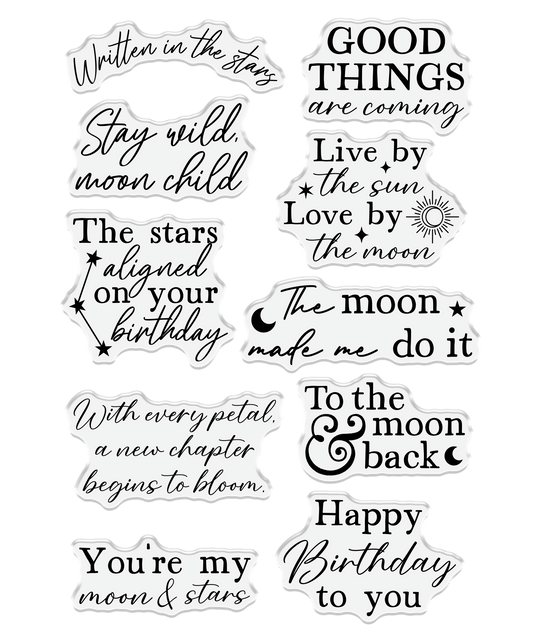 Written in the stars
Stay wild,
moon child
The stars
aligned
on your
birthday
With every petal,
a new chapter
begins to bloom.
You're my
moon & stars
GOOD
THINGS
are coming
Live by
the sun
Love by
the moon
The moon
made me do it
To the
& moon
back
Happy
Birthday
to you